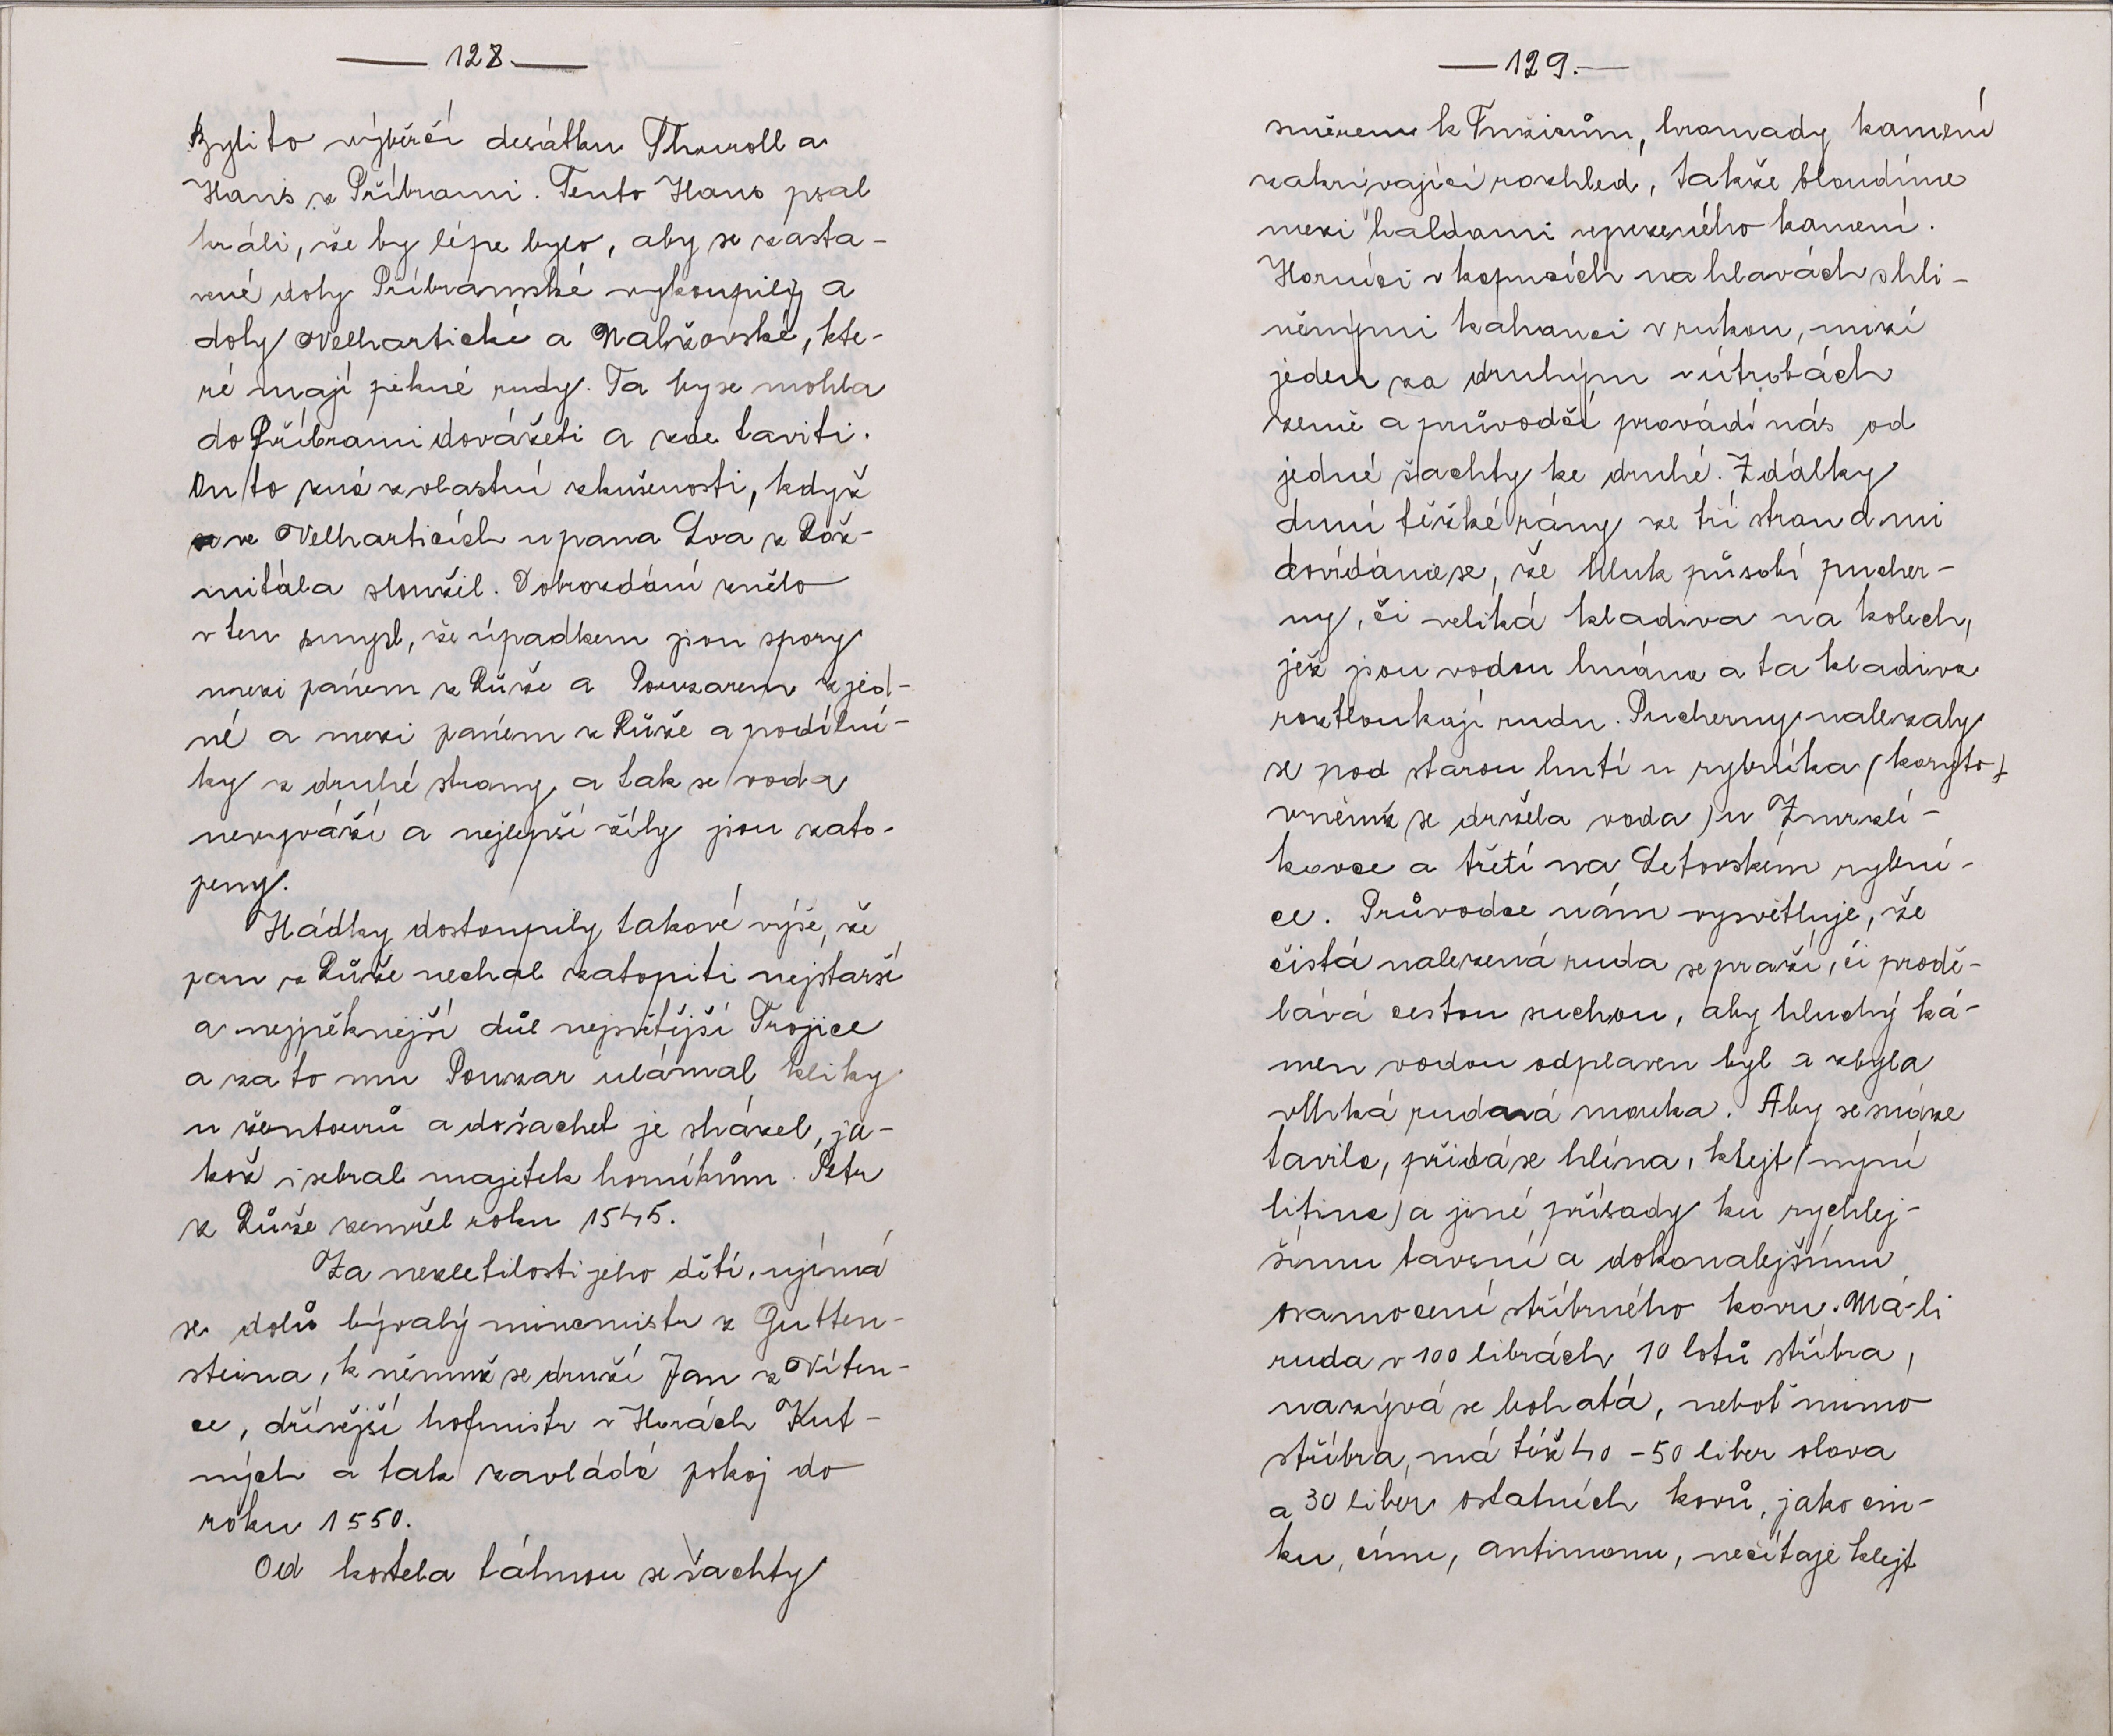 128.
Byli to výběrčí desátku Thuroll a
Hanš z Příbrami. Tento Hans psal
králi, že by lépe bylo, aby se zasta-
vené doly Příbramské vykoupily a
doly Velhartické a Nalžovské, kte-
ré mají pěkné rudy. Ta by se mohla
do Příbrami dovážeti a zde taviti.
On to zná z vlastní zkušenosti, když
ve Velharticích u pana Lva z Rož-
mitála sloužil. Dobrozdání znělo
v ten smysl, že úpadkem jsou spory
mezi pánem z Růže a Pouzarem z jed-
né a mezi pánem z Růže a podílní-
ky z druhé strany, a tak se voda
nevyváží a nejlepší žíly jsou zato-
peny.
Hádky dostoupily takové výše, že
pan z Růže nechal zatopiti nejstarší
a nejpěknější důl nejsvětější Trojice
a za to mu Pouzar ulámal kliky
u žentourů a do šachet je sházel, ja-
kož i sebral majetek horníkům. Petr
z Růže zemřel roku 1545.
Za nezletilosti jeho dětí, ujímá
se dolů bývalý mincmistr z Gutten-
steina, k němuž se druží Jan z Víten-
ce, dřívější hofmistr v Horách Kut-
ných a tak zavládá pokoj do
roku 1550.
Od kostela táhnou se šachty
129.
směrem k Funžirům, hromady kamení
zakrývající rozhled, takže bloudíme
mezi haldami vyvezeného kamení.
Horníci v kapucích na hlavách s hli-
něnými kahanci v rukou, mizí
jeden za druhým v útrobách
země a průvodčí provádí nás od
jedné šachty ke druhé. Z dálky
duní těžké rány ze tří stran a my
dovídáme se, že hluk působí pucher-
ny, či veliká kladiva na kolech,
jež jsou vodou hnána a ta kladiva
roztloukají rudu. Pucherny nalézaly
se pod starou hutí u rybníka (koryto,
v němž se držela voda) u Zmrzlí-
kovce a třetí na Letovském rybní-
ce. Průvodce nám vysvětluje, že
čistá nalezená ruda se praží, či prodě-
lává cestou suchou, aby hluchý ká-
men vodou odplaven byl a zbyla
vlhká rudná mouka. Aby se snáze
tavila, přidá se hlína, klejt (nyní
litina) a jiné přísady ku rychlej-
šímu tavení a dokonalejšímu
osamocení stříbrného kovu. Má-li
ruda v 100 librách 10 lotů stříbra,
nazývá se bohatá, neboť mimo
stříbra, má též 40 - 50 liber olova
a 30 liber ostatních kovů, jako cin-
ku, cínu, antimonu, nečítaje klejt